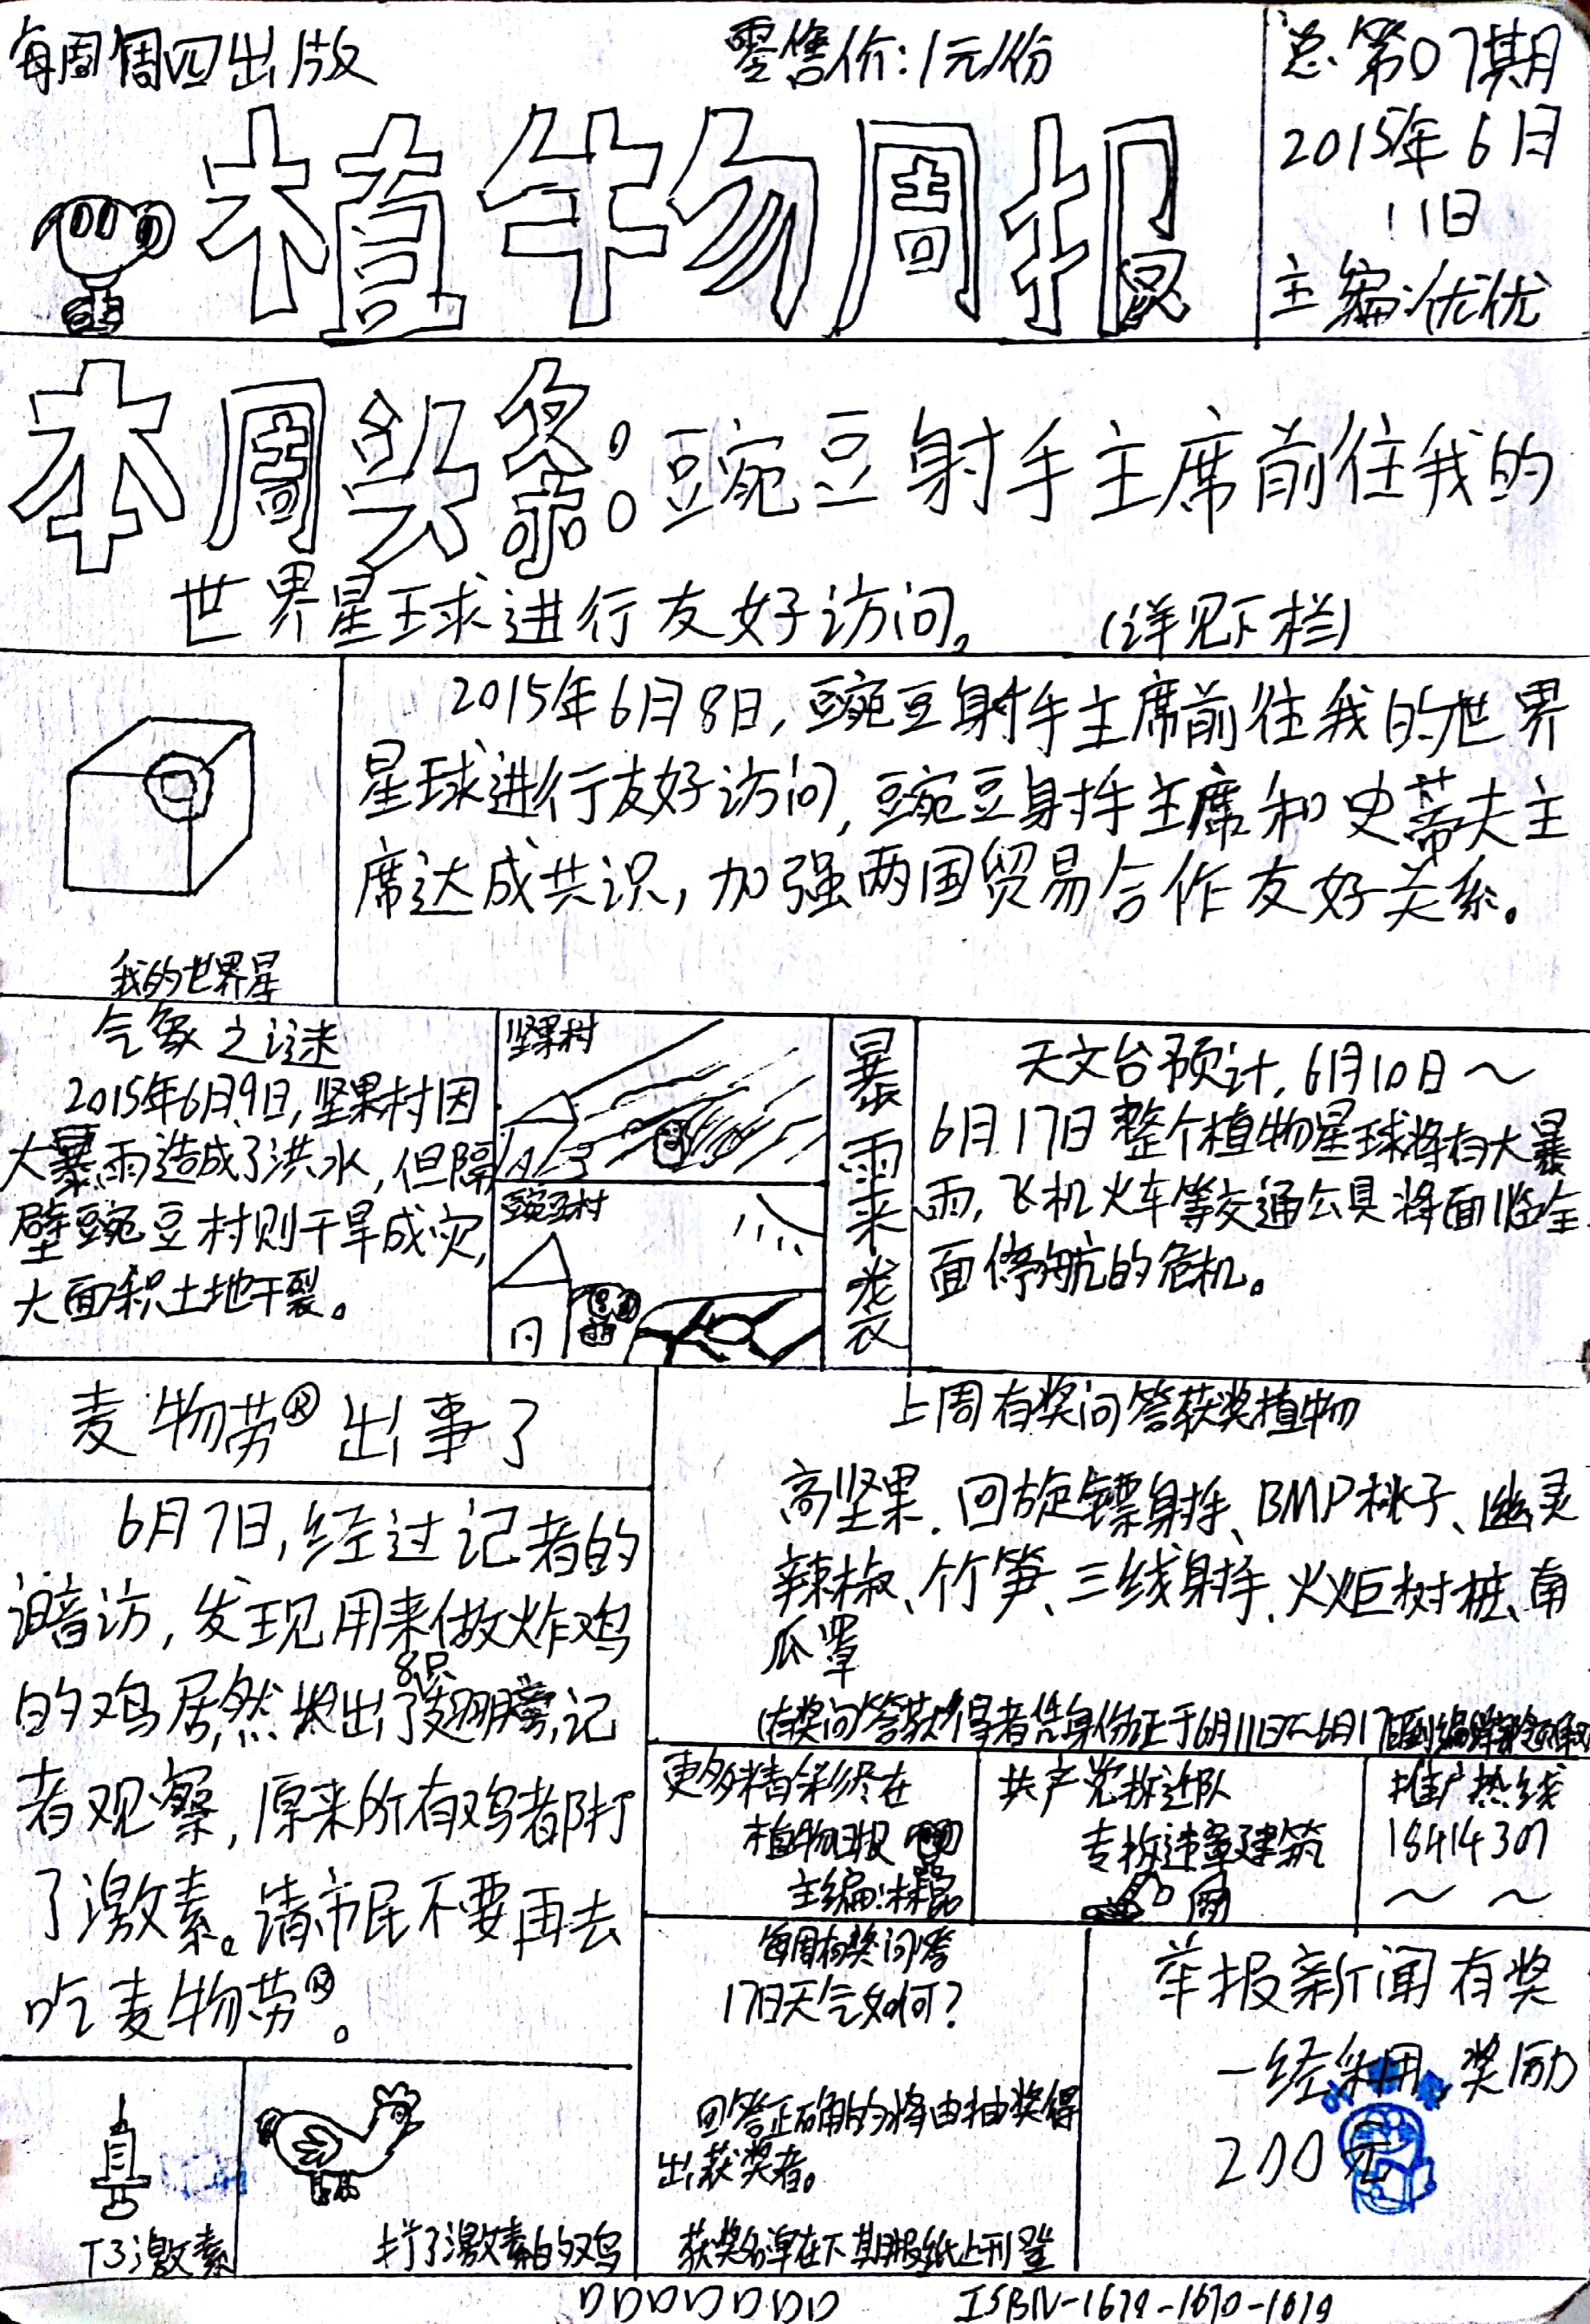 每周周四出版
零售价:1元/份
总第07期
2015年6月
11日
主编:优优
植物周报
本周头条:豌豆射手主席前往我的
世界星球进行友好访问。 (详见下栏)
我的世界星
2015年6月8日,豌豆射手主席前往我的世界
星球进行友好访问,豌豆射手主席和史蒂夫主
席达成共识,加强两国贸易合作友好关系。
气象之谜
2015年6月9日,坚果村因
大暴雨造成了洪水,但隔
壁豌豆村则干旱成灾,
大面积土地干裂。
坚果村
豌豆村
暴雨来袭
天文台预计,6月10日~
6月17日整个植物星球将有大暴
雨,飞机火车等交通公具将面临全
面停航的危机。
麦物劳® 出事了
6月7日,经过记者的
暗访,发现用来做炸鸡
的鸡居然长出了8只翅膀,记
者观察,原来所有鸡都打
了激素。请市民不要再去
吃麦物劳®。
T3激素
打了激素的鸡
上周有奖问答获奖植物
高坚果、回旋镖射手、BMP桃子、幽灵
辣椒、竹笋、三线射手、火炬树桩、南
瓜罩
(有奖问答获得者凭身份证于6月11日~6月17日到编辑部领取
更多精彩尽在
植物日报
主编:林昆
共产党拆迁队
专拆违章建筑
推广热线
18414307
~ ~
每周有奖问答
17日天气如何?
回答正确的将由抽奖得
出获奖者。
获奖名单在下期报纸上刊登
举报新闻有奖
一经采用,奖励
200元
ISBN-1679-1670-1619